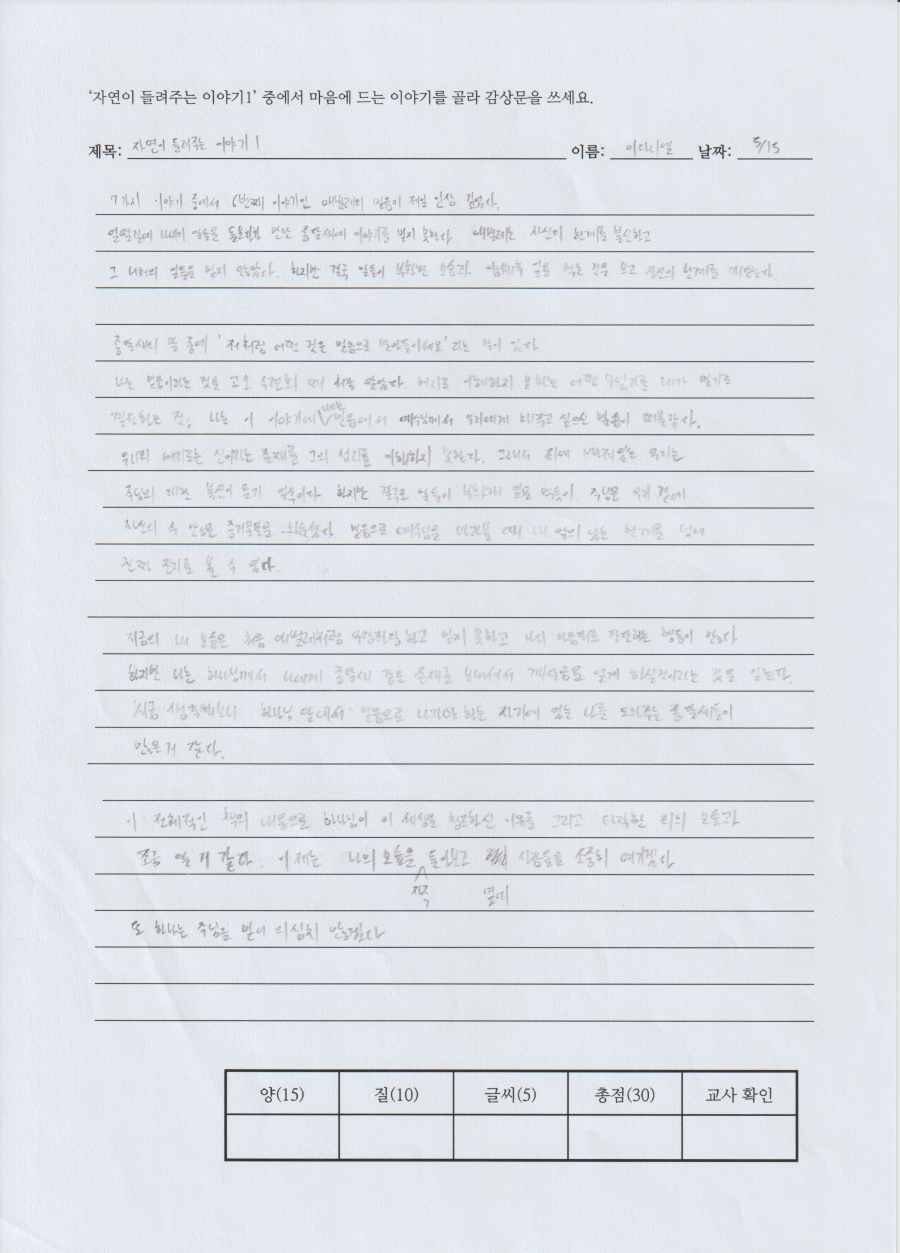 ‘자연이 들려주는 이야기1’ 중에서 마음에 드는 이야기를 골라 감상문을 쓰세요.
제목: 자연이 들려주는 이야기 1 이름: 이다니엘 날짜: 5/15
7가지 이야기 중에서 이야기인 애벌레의 믿음이 제일 인상 깊었다.
얼떨결에 나비의 알들을 된 애벌레는 종달새의 이야기를 믿지 못한다. 애벌레는 자신의 한계를 불신하고
그 내면의 믿지 않았다. 하지만 결국 알들이 부화한 모습과 잎을 먹는 것을 보고 자신의 한계를
종달새의 말 중에 '저처럼 어떤 것은 믿음으로 받아들이세요' 라는 말이 있다
나는 믿음이라는 것을 고2 수련회 때 처음 알았다. 머리로 이해하지 못하는 어떤 내가 믿기로
결단하는 것, 나는 이 이야기에 나오는 믿음에서 예수님께서 우리에게 해주고 싶으신 말씀이 떠올랐다.
우리의 머리로는 신이라는 존재를 그의 섭리를 이해하지 못한다. 그래서
주님의 대한 불신이 하지만 결국은 알들이 잎을 먹듯이 주님은 우리 곁에
자신의 수 많은 증거물들을 믿음으로 예수님을 바라볼 때 내 앞의 있는 한계를 넘어
진짜 진리를 볼 수 있다.
지금의 내 모습은 처음 애벌레처럼 하고 믿지 못하고 나의 판단하는 행동이 많다
하지만 나는 하나님께서 나에게 종달새 같은 존재를 보내셔서 깨닫게 하실것이라는 것을 믿는다.
지금 생각해보니 하나님 앞에서 믿음으로 나가야 하는 자리에 있는 나를 도와주는 종달새들이
많은거 같다.
이 전체적인 책의 내용으로 하나님이 이 세상을 창조하신 이유를 그리고 타락한 죄의 모습과
조금 알 거 같다. 이제는 나의 모습을 자주 돌아보고 옆에 사람들을 소중히 여기겠다
또 하나는 주님을 믿어 의심치 않겠다
양(15) 질(10) 글씨(5) 총점(30) 교사 확인